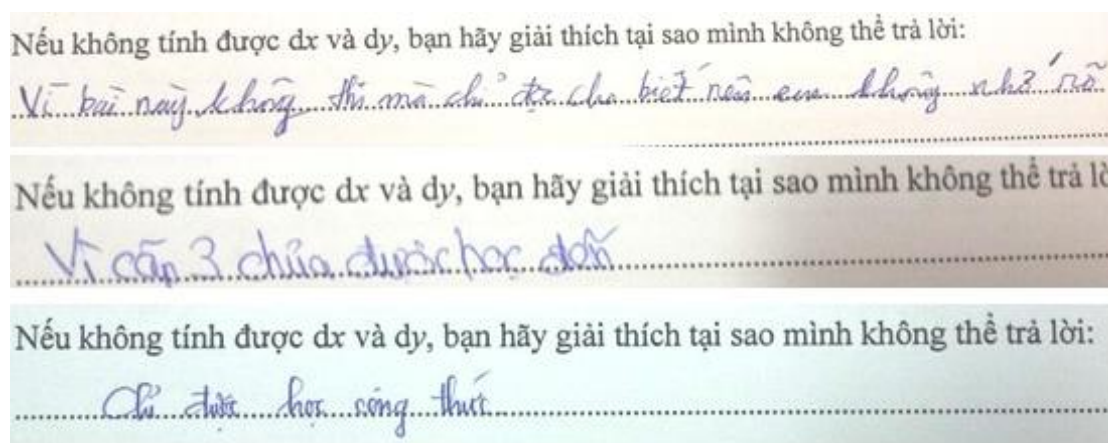 Nếu không tính được dx và dy, bạn hãy giải thích tại sao mình không thể trả lời:
Vì bài này không thi mà chỉ đc cho biết nên em không nhớ rõ
Nếu không tính được dx và dy, bạn hãy giải thích tại sao mình không thể trả lờ
Vì cấp 3 chưa được học đến
Nếu không tính được dx và dy, bạn hãy giải thích tại sao mình không thể trả lời:
Chỉ được học công thức